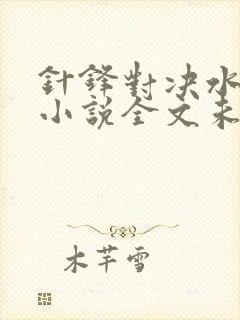 針鋒對決水
小說全文未
木芊雪